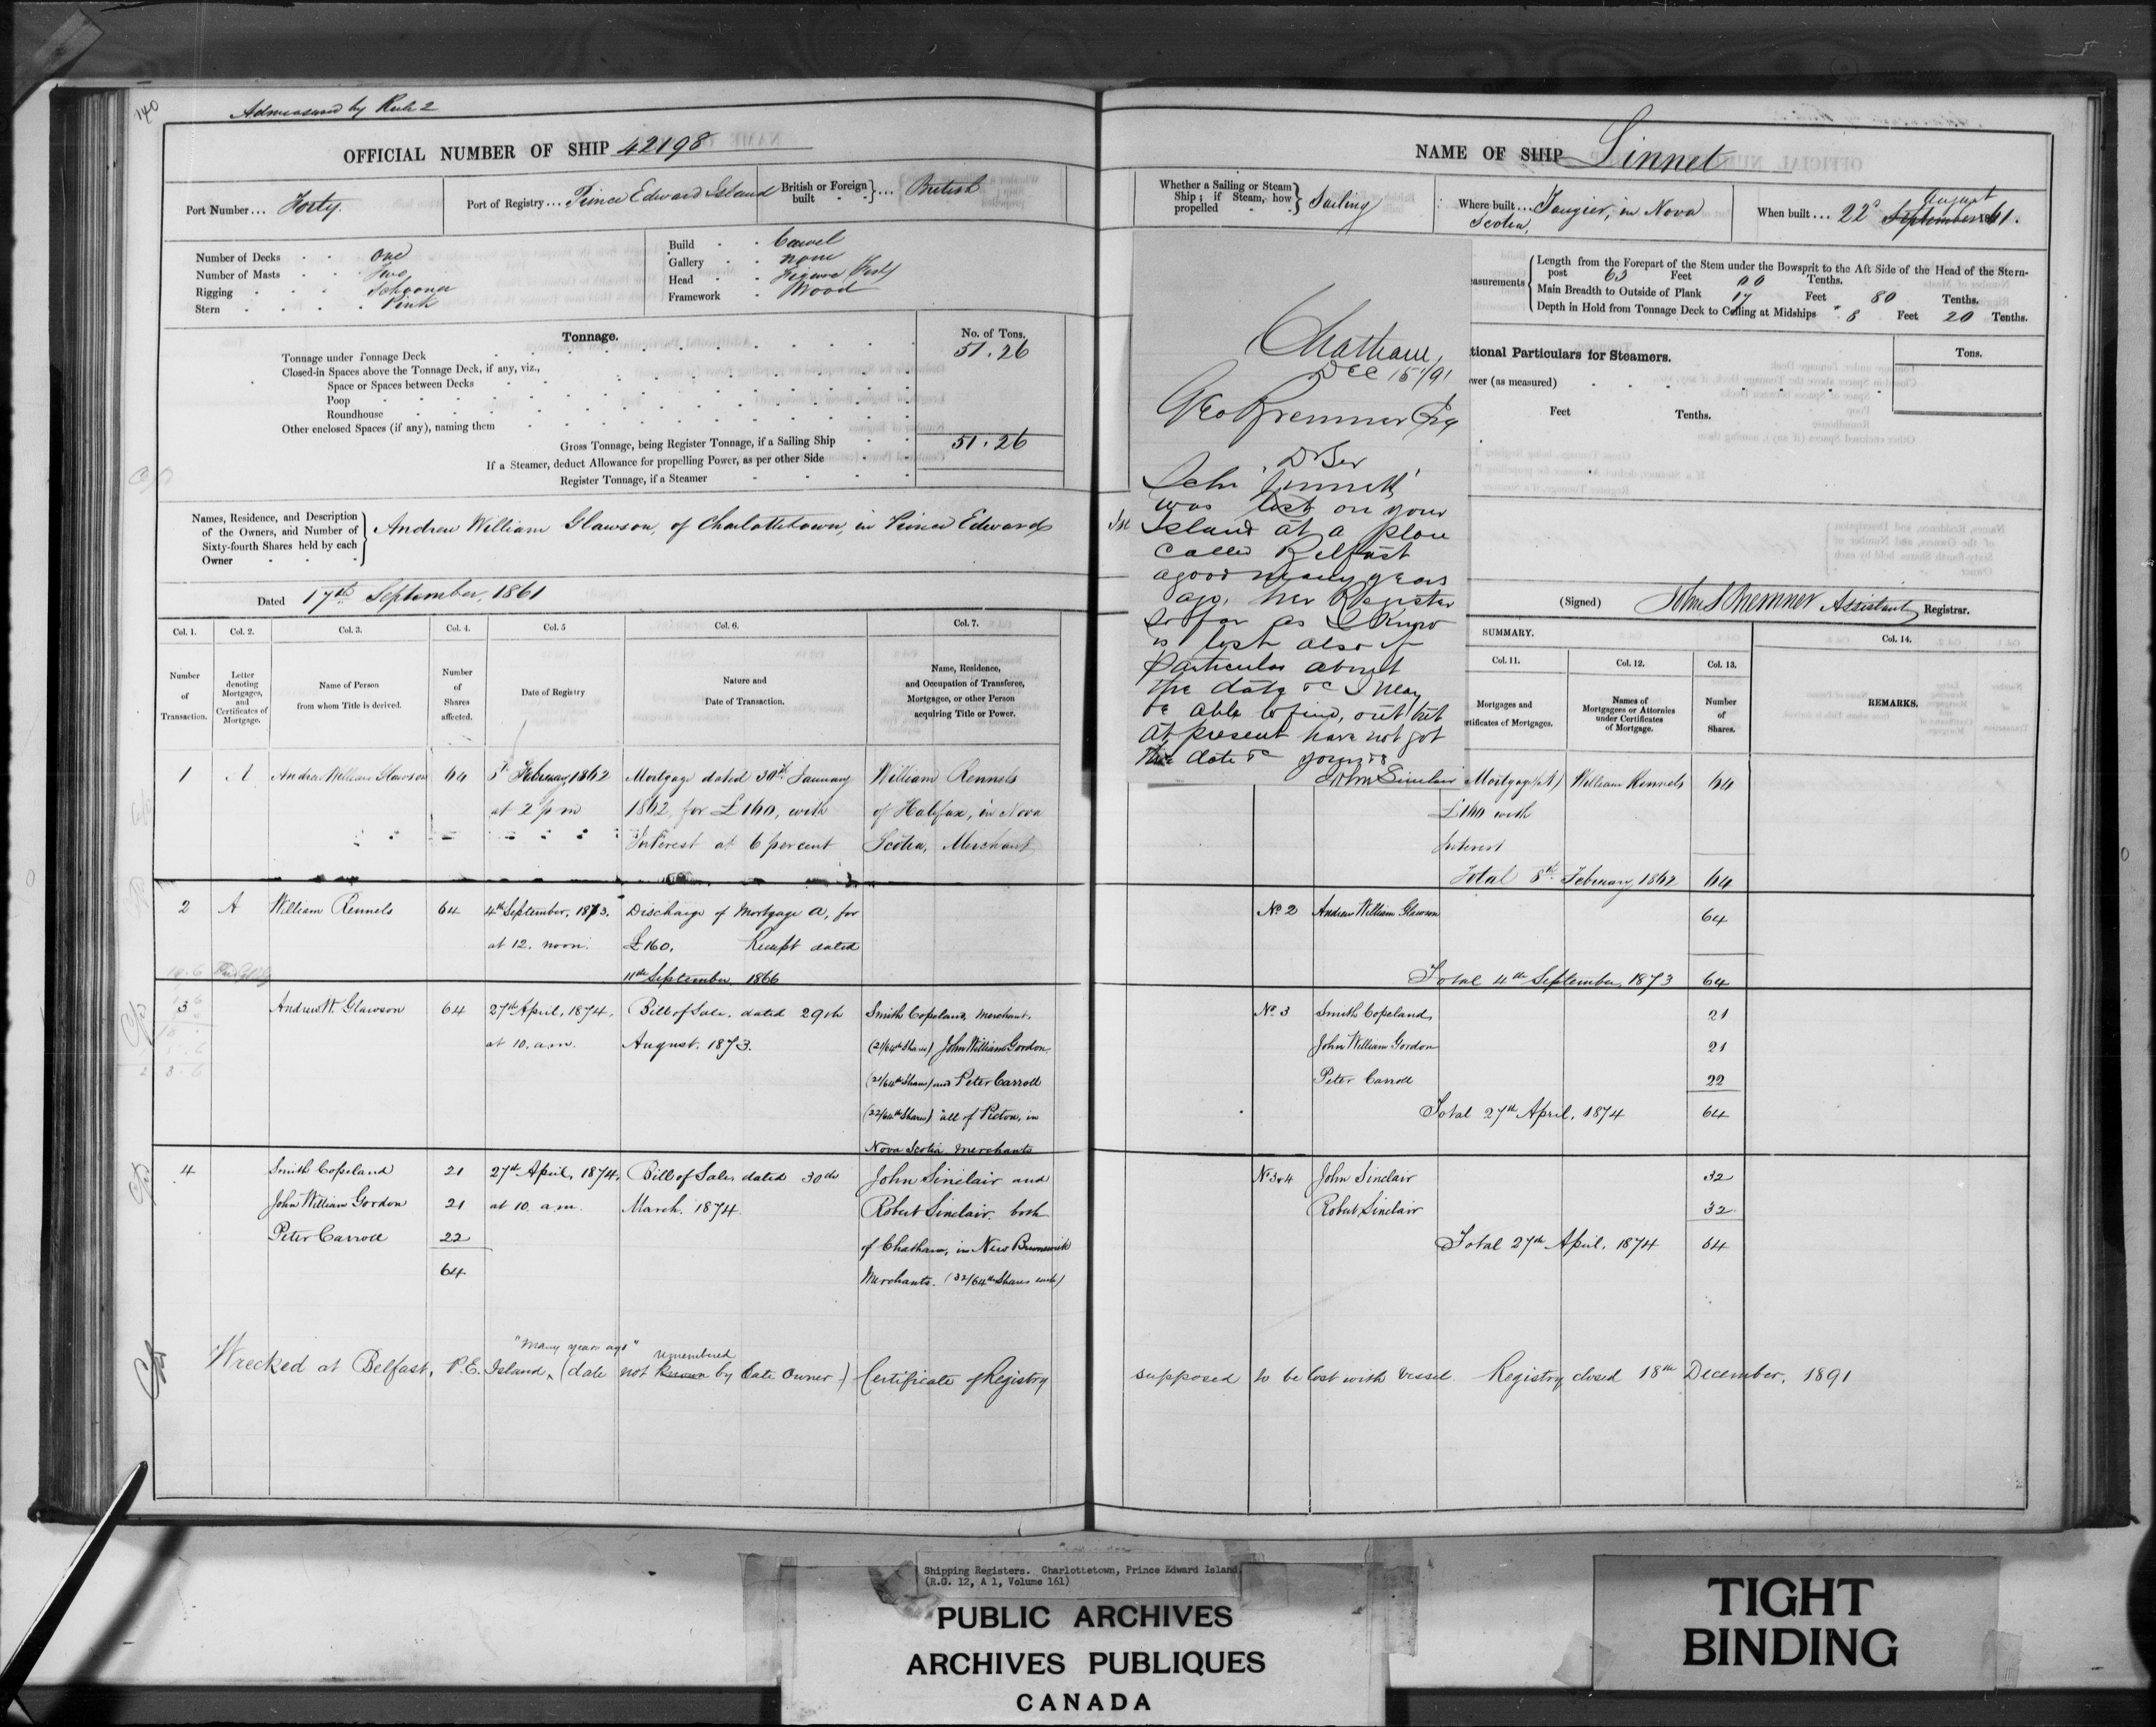 140
Admeasured by Rule 2
OFFICIAL NUMBER OF SHIP 42198
Port Number... Forty.
Port of Registry... Prince Edward Island
British or Foreign built } ... British
Number of Decks One
Number of Masts Two
Rigging Schooner
Stern Pink
Build Carvel
Gallery None
Head Figure Bust
Framework Wood
Tonnage.
No. of Tons.
Tonnage under Tonnage Deck 51.26
Closed-in Spaces above the Tonnage Deck, if any, viz.,
Space or Spaces between Decks
Poop
Roundhouse
Other enclosed Spaces (if any), naming them
Gross Tonnage, being Register Tonnage, if a Sailing Ship 51.26
If a Steamer, deduct Allowance for propelling Power, as per other Side
Register Tonnage, if a Steamer
Names, Residence, and Description of the Owners, and Number of Sixty-fourth Shares held by each Owner
Andrew William Glawson, of Charlottetown, in Prince Edward
Dated 17th September, 1861
Col. 1. Col. 2. Col. 3. Col. 4. Col. 5 Col. 6. Col. 7.
Number of Transaction.
Letter denoting Mortgages, and Certificates of Mortgage.
Name of Person from whom Title is derived.
Number of Shares affected.
Date of Registry
Nature and Date of Transaction.
Name, Residence, and Occupation of Transferee, Mortgagee, or other Person acquiring Title or Power.
1 A Andrew William Glawson 64 8th February, 1862 Mortgage dated 30th January William Rennels
at 2 p m 1862, for £160, with of Halifax, in Nova
Interest at 6 per cent Scotia, Merchant
2 A William Rennels 64 4th September, 1873. Discharge of Mortgage A, for
at 12. noon. £160. Receipt dated
11th September 1866
3 Andrew W. Glawson 64 27th April, 1874. Bill of Sale, dated 29th Smith Copeland, Merchant,
at 10. a.m. August, 1873. (21/64th Shares) John William Gordon,
(21/64th Shares) and Peter Carroll
(22/64th Shares) all of Pictou, in
Nova Scotia Merchants
4 Smith Copeland 21 27th April, 1874, Bill of Sale, dated 30th John Sinclair and
John William Gordon 21 at 10. a.m. March, 1874. Robert Sinclair, both
Peter Carroll 22 of Chatham, in New Brunswick
64 Merchants. (32/64th Shares each)
"many years ago" remembered
Wrecked at Belfast, P.E. Island, (date not known by late Owner) Certificate of Registry
NAME OF SHIP Linnet
Whether a Sailing or Steam Ship; if Steam, how propelled } Sailing
Where built... Tangier, in Nova
Scotia,
August
When built... 22d September 1861.
Length from the Forepart of the Stem under the Bowsprit to the Aft Side of the Head of the Stern-
post 63 Feet 00 Tenths.
asurements
Main Breadth to Outside of Plank 17 Feet 80 Tenths.
Depth in Hold from Tonnage Deck to Ceiling at Midships 8 Feet 20 Tenths.
tional Particulars for Steamers.
Tons.
ower (as measured)
Feet Tenths.
Chatham,
Dec 15/91
Geo Bremner Esq
D Ser
Schr Linnett
was lost on your
Island at a place
called Belfast
a good many years
ago, her Register
so far as I know
is lost also if
particular about
the date &c I may
be able to find out but
at present have not got
the date &c yours
John Sinclair
(Signed) John S Bremner Assistant Registrar.
SUMMARY.
Col. 11. Col. 12. Col. 13. Col. 14.
Mortgages and
rtificates of Mortgages.
Names of Mortgagees or Attornies under Certificates of Mortgage.
Number of Shares.
REMARKS.
Mortgage (A) William Rennels 64
£160 with
Interest
Total 8th February, 1862 64
No 2 Andrew William Glawson 64
Total 4th September, 1873 64
No 3 Smith Copeland 21
John William Gordon 21
Peter Carroll 22
Total 27th April, 1874 64
No 3&4 John Sinclair 32
Robert Sinclair 32
Total 27th April, 1874 64
supposed to be lost with vessel Registry closed 18th December, 1891
Shipping Registers. Charlottetown, Prince Edward Island
(R.G. 12, A 1, Volume 161)
PUBLIC ARCHIVES
ARCHIVES PUBLIQUES
CANADA
TIGHT
BINDING